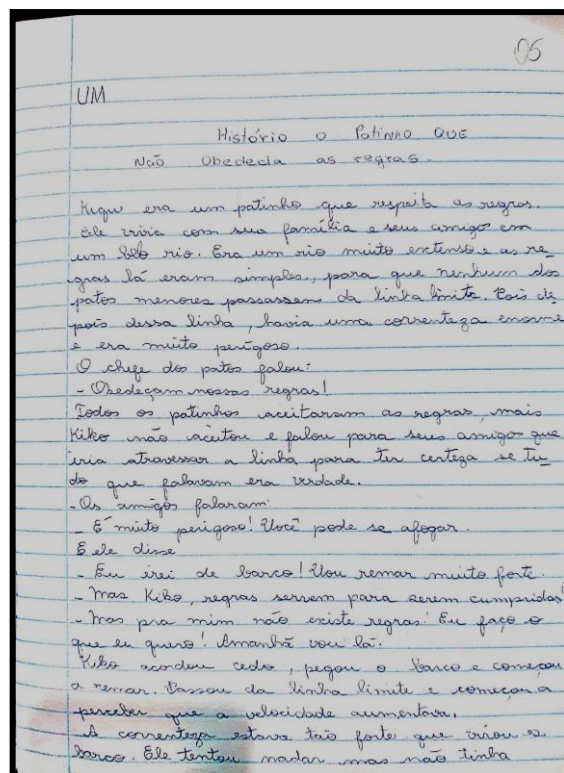 05
UM
Histório o Patinho QUE
Não Obedecia as regras.
Kiqu era um patinho que respeita as regras.
Ele vivia com sua família e seus amigos em
um belo rio. Era um rio muito extenso e as re-
gras lá eram simples, para que nenhum dos
patos menores passassem da linha limite. Pois de-
pois dessa linha, havia uma correnteza enorme
e era muito perigoso.
O chefe dos patos falou:
- Obedeçam nossas regras!
Todos os patinhos aceitaram as regras, mais
Kiko não aceitou e falou para seus amigos que
iria atravessar a linha para ter certeza se tu-
do que falavam era verdade.
- Os amigos falaram:
- É muito perigoso! Você pode se afogar.
E ele disse
- Eu irei de barco! Vou remar muito forte.
- Mas Kiko, regras servem para serem cumpridas!
- Mas pra mim não existe regras! Eu faço o
que eu quero! Amanhã vou lá.
Kiko acordou cedo, pegou o barco e começou
a remar. Passou da linha limite e começou a
perceber que a velocidade aumentava.
A correnteza estava tão forte que virou o
barco. Ele tentou nadar mas não tinha